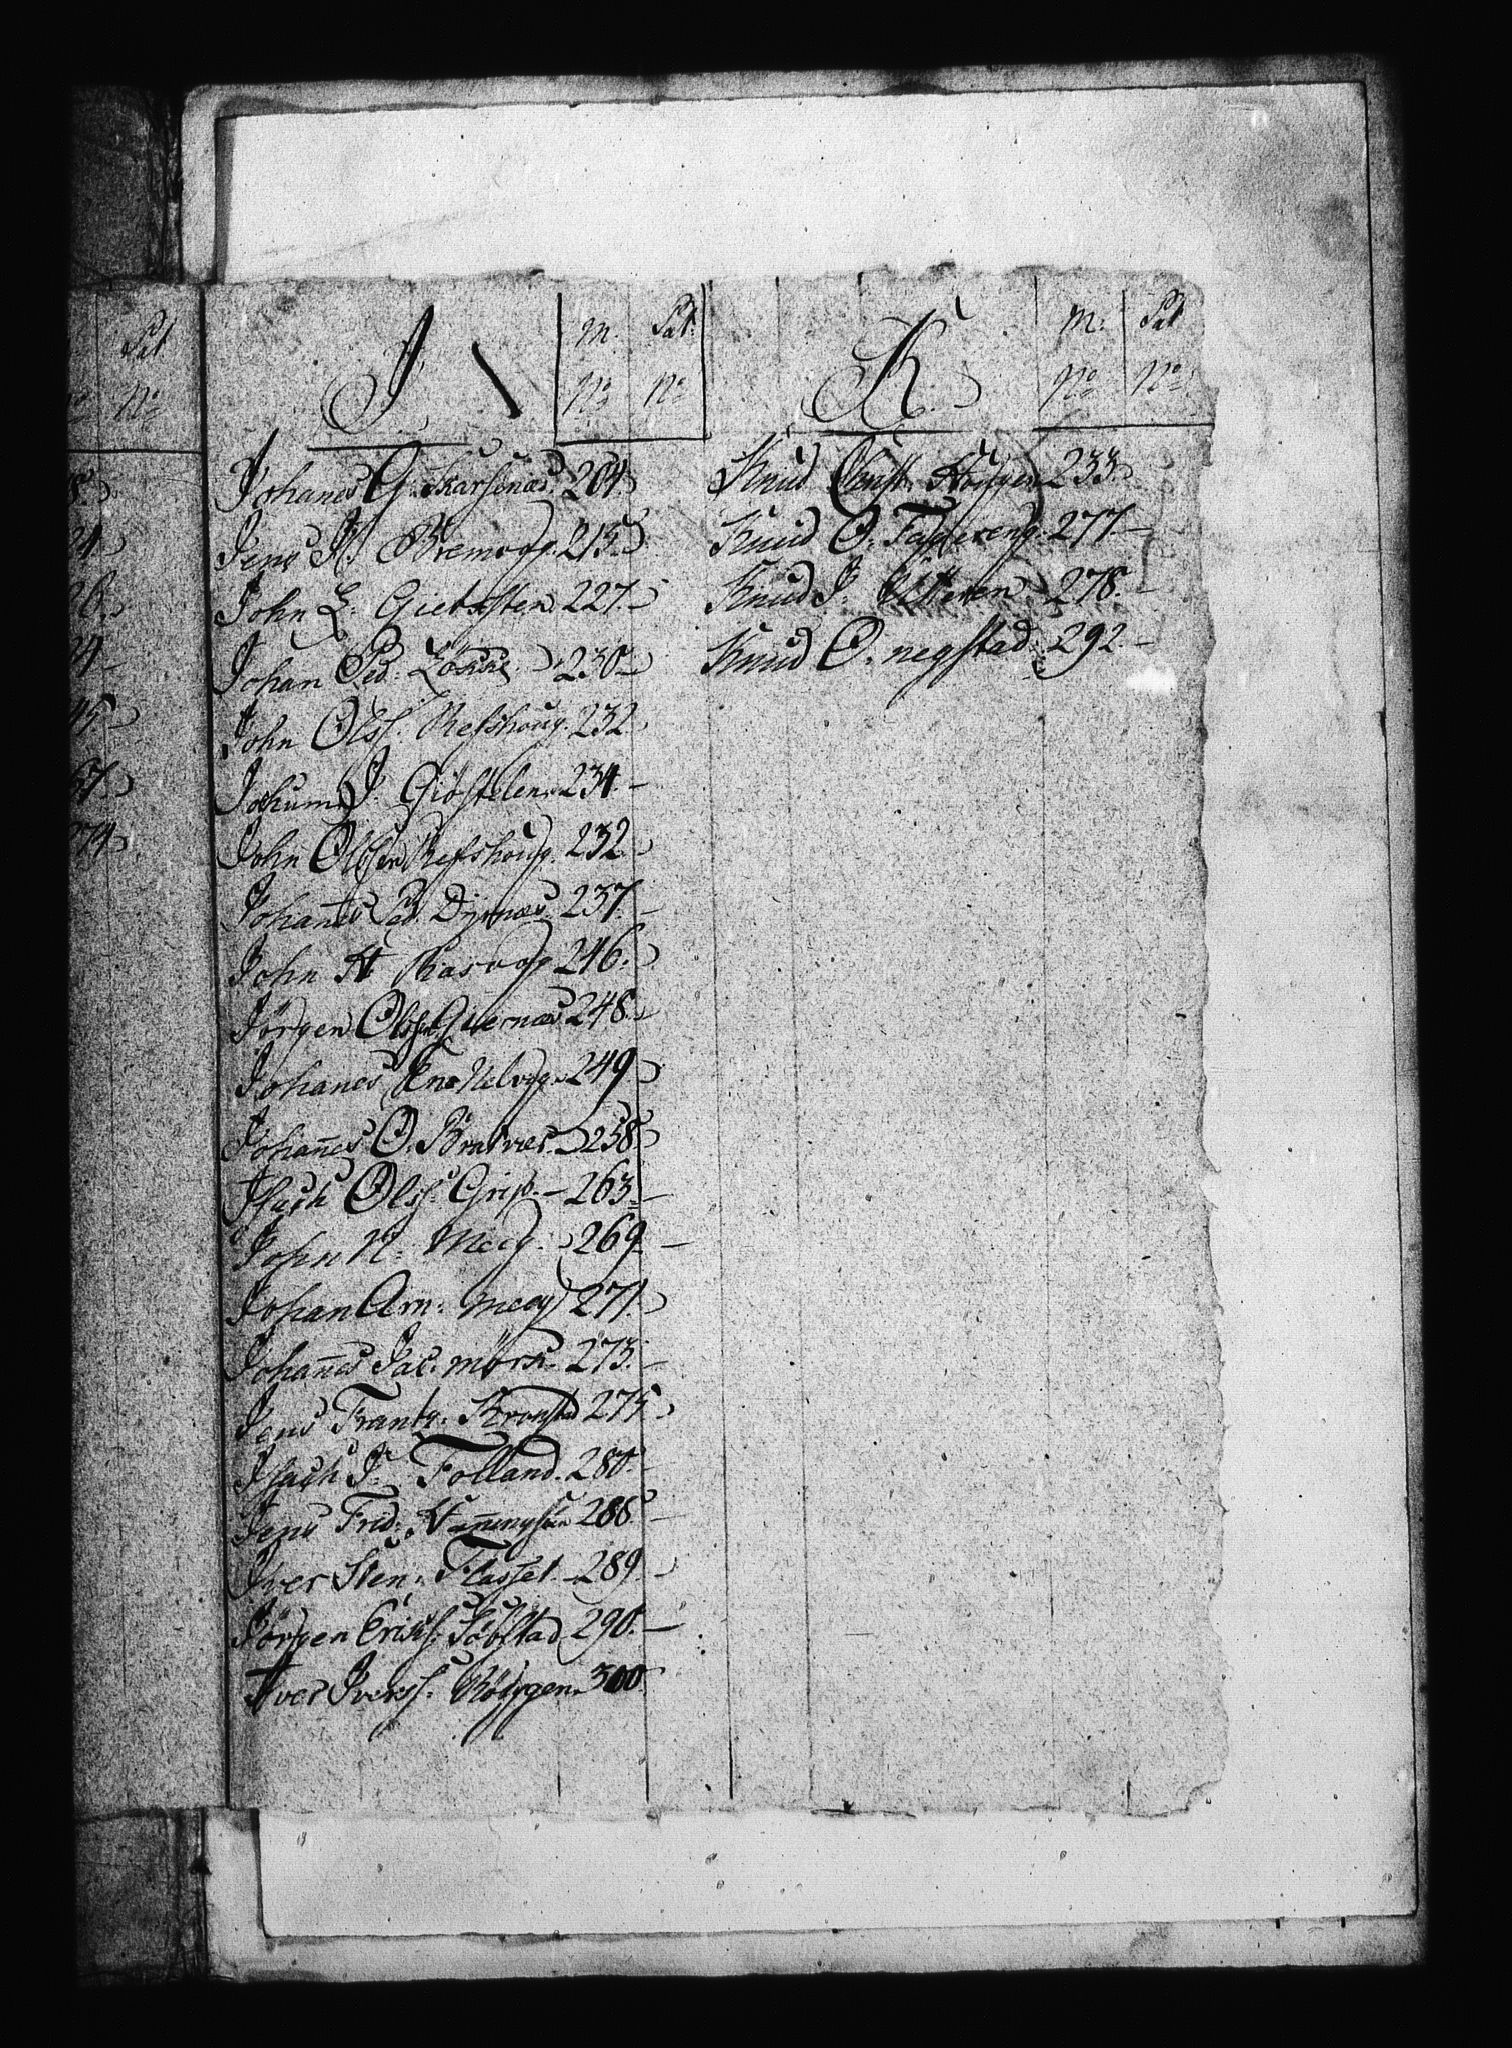 Pat
No
8.
24
26.
24
45.
67.
274
J
M. Pat.
No No
Johanes G. Karsenæs. 204.
Jens N. Bremsvog. 215.
John L. Gietøsten 227.
Johan Ped: Løkke 230
John Olss. Refshoug. 232
Jochum J. Giøstelen. 234.
John Olssen Refshoug. 232.
Johanes Ped. Dyrnæs. 237.
John H Rasvog 246.
Jørgen Olss. Quernæs 248.
Johanes Kn: Nelvog. 249
Johannes O. Bratnæs. 258.
Isach Olss. Grip. 263.
John N: Meeg. 269.
Johan Arn: Meeg 271.
Johannes Jac: Mörk. 273.
Jens Frantz: Kronstad 275
Isach J: Folland. 280.
Jens Frid: Hanningsen 288.
Iver Sten: Flasset. 289.
Jørgen Erichs: Søbstad 290.
Iver Iverss: Røsgen. 300.
K.
M: Pat
No No
Knud Chrst. Hougen 233.
Knud O. Faggereng. 277.
Knud J. Ulteren. 278.
Knud O. negstad. 292.